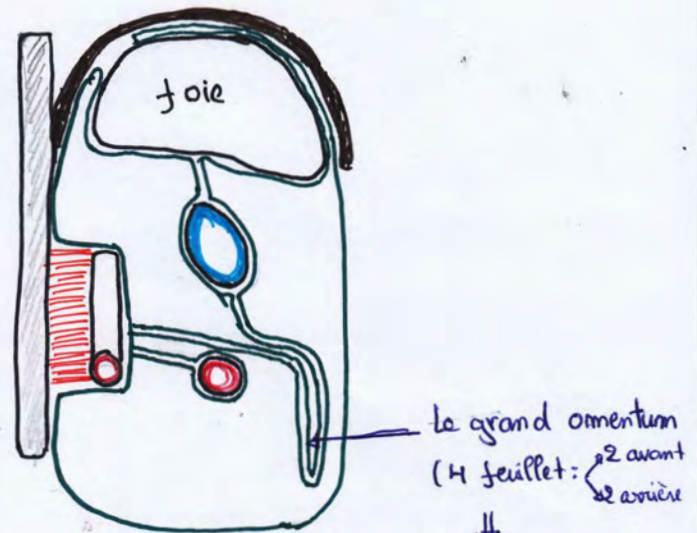 foie
Le grand omentum
(4 feuillet : 2 avant
2 arrière